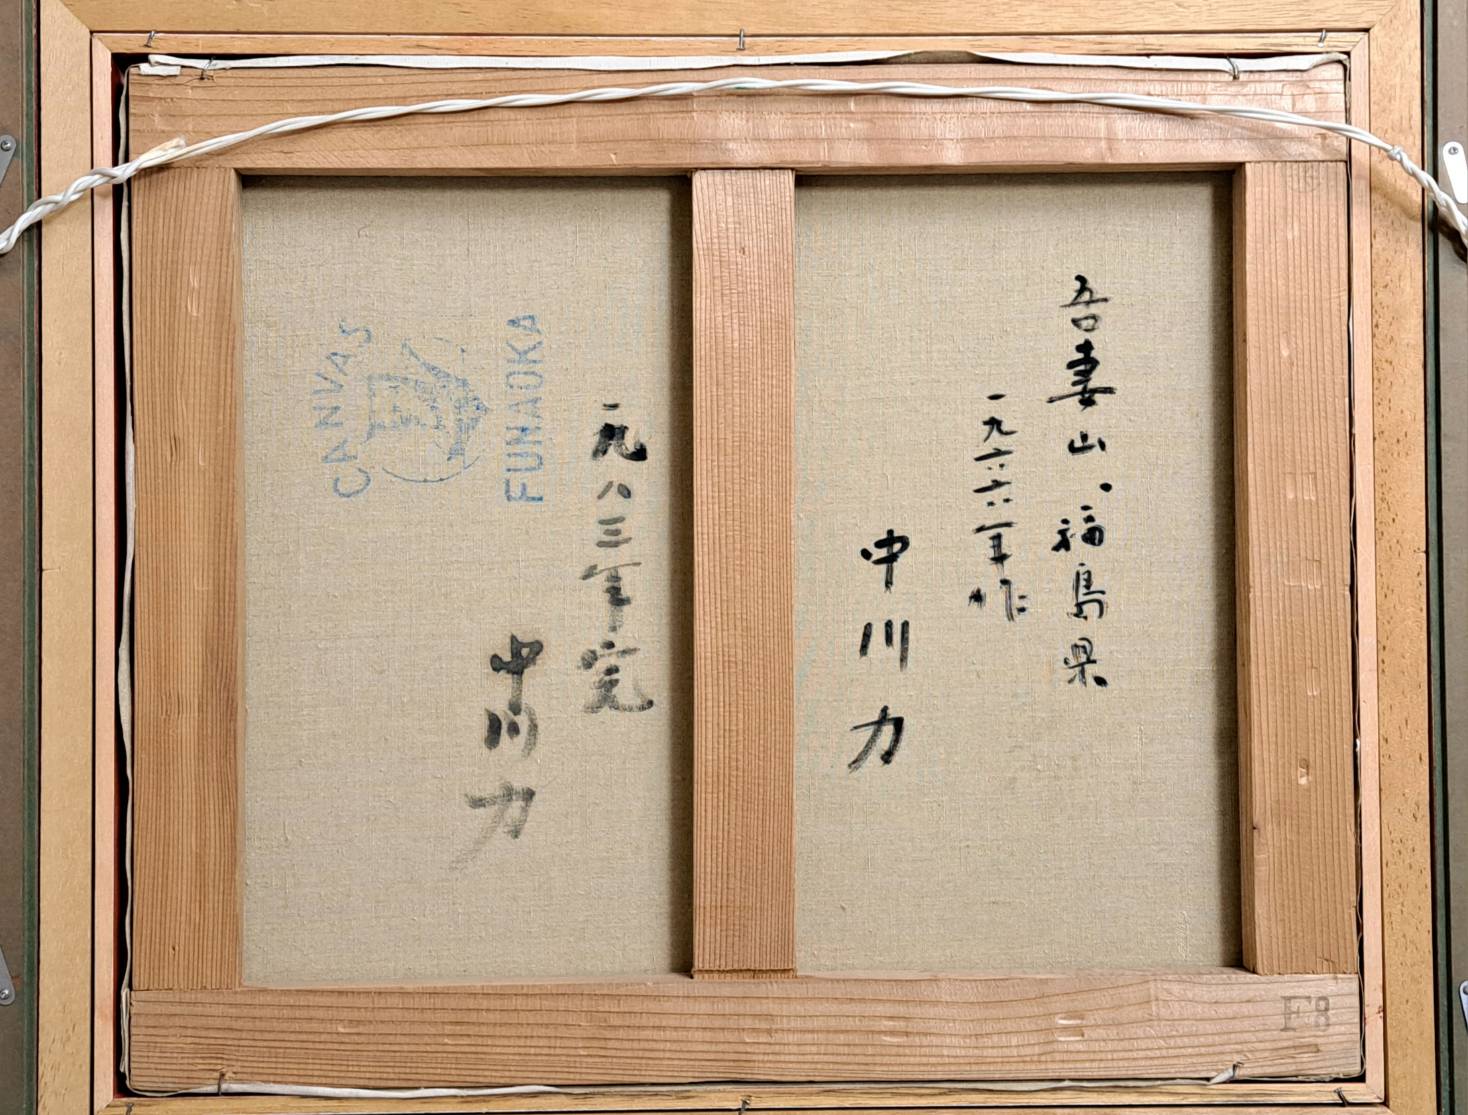 吾妻山、福島県
一九六六年作
中川力
一九八三年完
中川力
CANVAS
FUNAOKA
F8